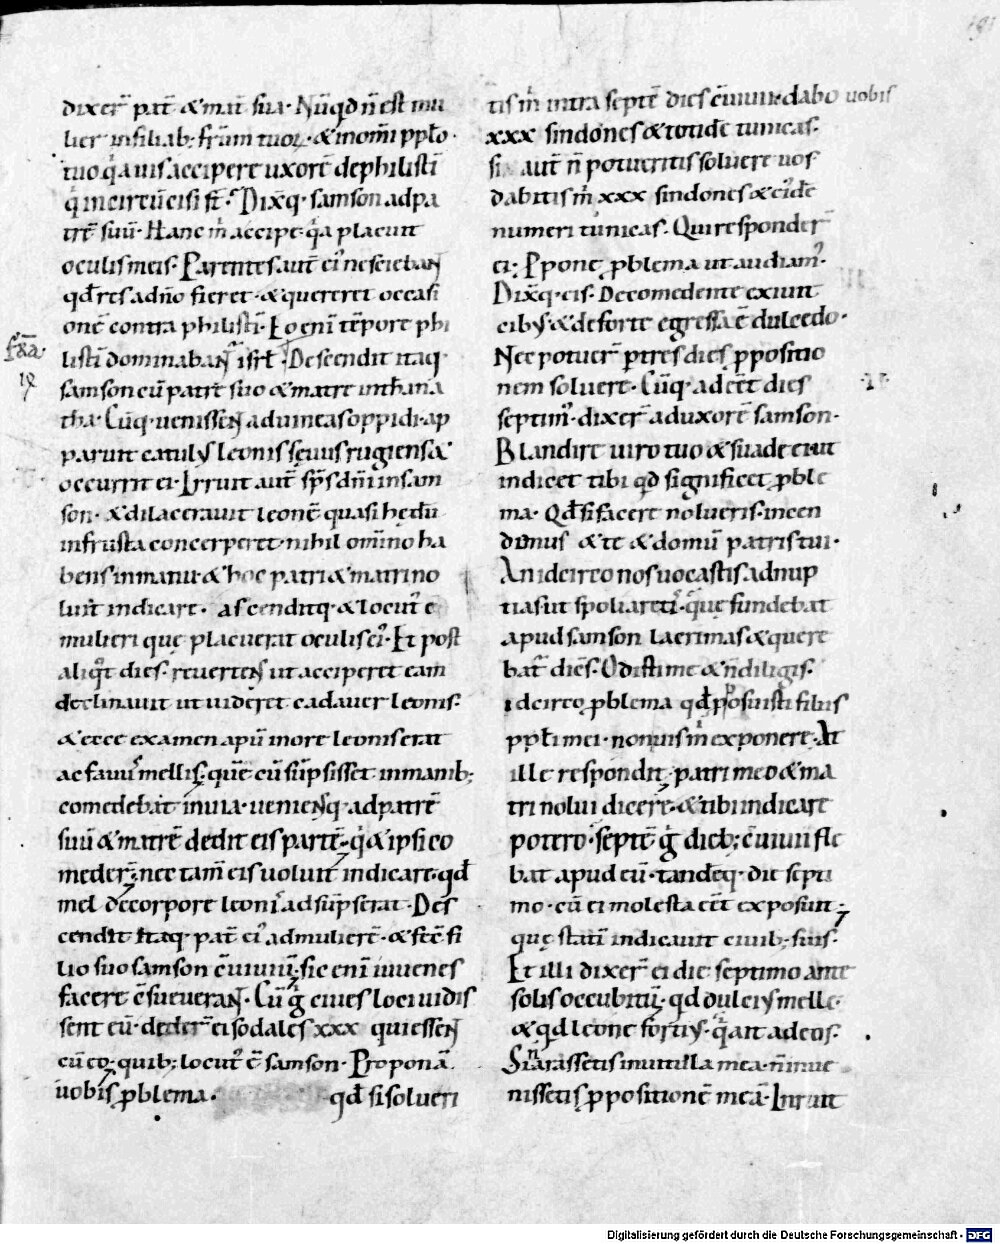 191
dixer̄ pat̄ &mat̄ sua· Nūqd n̄ est mu
lier infiliab; fr̄m tuoꝝ·&inom̄i pplo·
tuo q̓a uis accipere uxorē dephilistī
q̓ incircūcisi st̄· Dix̄q· samson adpa
trē suū· Hanc m̓ accipe· q̓a placuit
oculis meis· Parentes aut̄ ei᾽ nesciebań
qd̄ res adn̄o fieret·&quereret occasi
onē contra philistī· Eo enī tēpore phi
listī dominabań isrl̄· Descendit itaq·
samson cū patre suo &matre inthāna
tha· Cūq· uenisseń aduineas oppidi· ap
paruit catulꝰ leonis sęuus rugiens &
occurrit ei· Irruit aut̄ sps̄ dn̄i insam
son· &dilacerauit leonē quasi hędū
infrusta concerperet· nihil om̄ino ha
bens inmanu·&hoc patri &matri no
luit indicare· ascenditq·&locut᾽ ē
mulieri quę placuerat oculis ei᾽· Et post
aliq̓t dies· reuerteń ut acciperet eam
declinauit ut uideret cadauer leonis·
&ecce examen apū inore leonis erat
ac fauu᾽ mellis· quē cū sūpsisset inmanib;
comedebat inuia· uenieńq· adpatrē
suū &matrē dedit eis partē· q̓&ipsi co
meder̄· nec tam̄ eis uoluit indicare· qd̄
mel decorpore leoni᾽ adsūpserat· Des
cendit itaq· pat̄ ei᾽ admulierē·&fec̄ fi
lio suo samson cōuiuiū· sic enī iuuenes
facere cōsueuerań· Cū g̓ ciues loci uidis
sent eū· deder̄ ei sodales xxx quiesseń
cū eo· quib; locut᾽ ē samson· Proponā
uobis pblema· qd̄ si solueri
tis m̓ intra septē dies cōuiuii· dabo uobis
xxx sindones &totidē tunicas·
sin aut̄ n̄ potueritis soluere uos
dabitis m̓ xxx sindones &ei᾽dē
numeri tunicas· Qui responder̄
ei; Ppone pblema ut audiam᾽·
Dix̄q· eis· Decomedente exiuit
cibꝰ·&deforte egressa ē dulcedo·
Nec potuer̄ p tres dies ppositio
nem soluere· Cūq· adeēt dies
septim᾽· dixer̄ aduxorē samson·
Blandire uiro tuo &suade ei ut
indicet tibi qd significet pble
ma· Qd̄ si facere nolueris· incen
dimus &te &domū patris tui·
An idcirco nos uocastis adnup
tias ut spoliareti᾽· quę fundebat
apud samson lacrimas &quere
bat᾽ diēs· Odisti me &n̄ diligis·
idcirco pblema qd̄ posuisti filiis
ppl̄i mei· non uis m̓ exponere· At
ille respondit· patri meo &ma
tri nolui dicere·&tibi indicare
potero· septē g̓ dieb; cōuiuii fle
bat apud eū· tandēq· die septi
mo· cū ei molesta eēt exposuit·
quę statī indicauit ciuib; suis·
Et illi dixer̄ ei die septimo ante
solis occubitū· qd dulciꝰ melle·
&qd leone fortiꝰ· q̓ ait ad eos·
Si n̄ arassetis inuitula mea· n̄ inue
nissetis ppositionē meā· Irruit
f&a
Digitalisierung gefördert durch die Deutsche Forschungsgemeinschaft - DFG